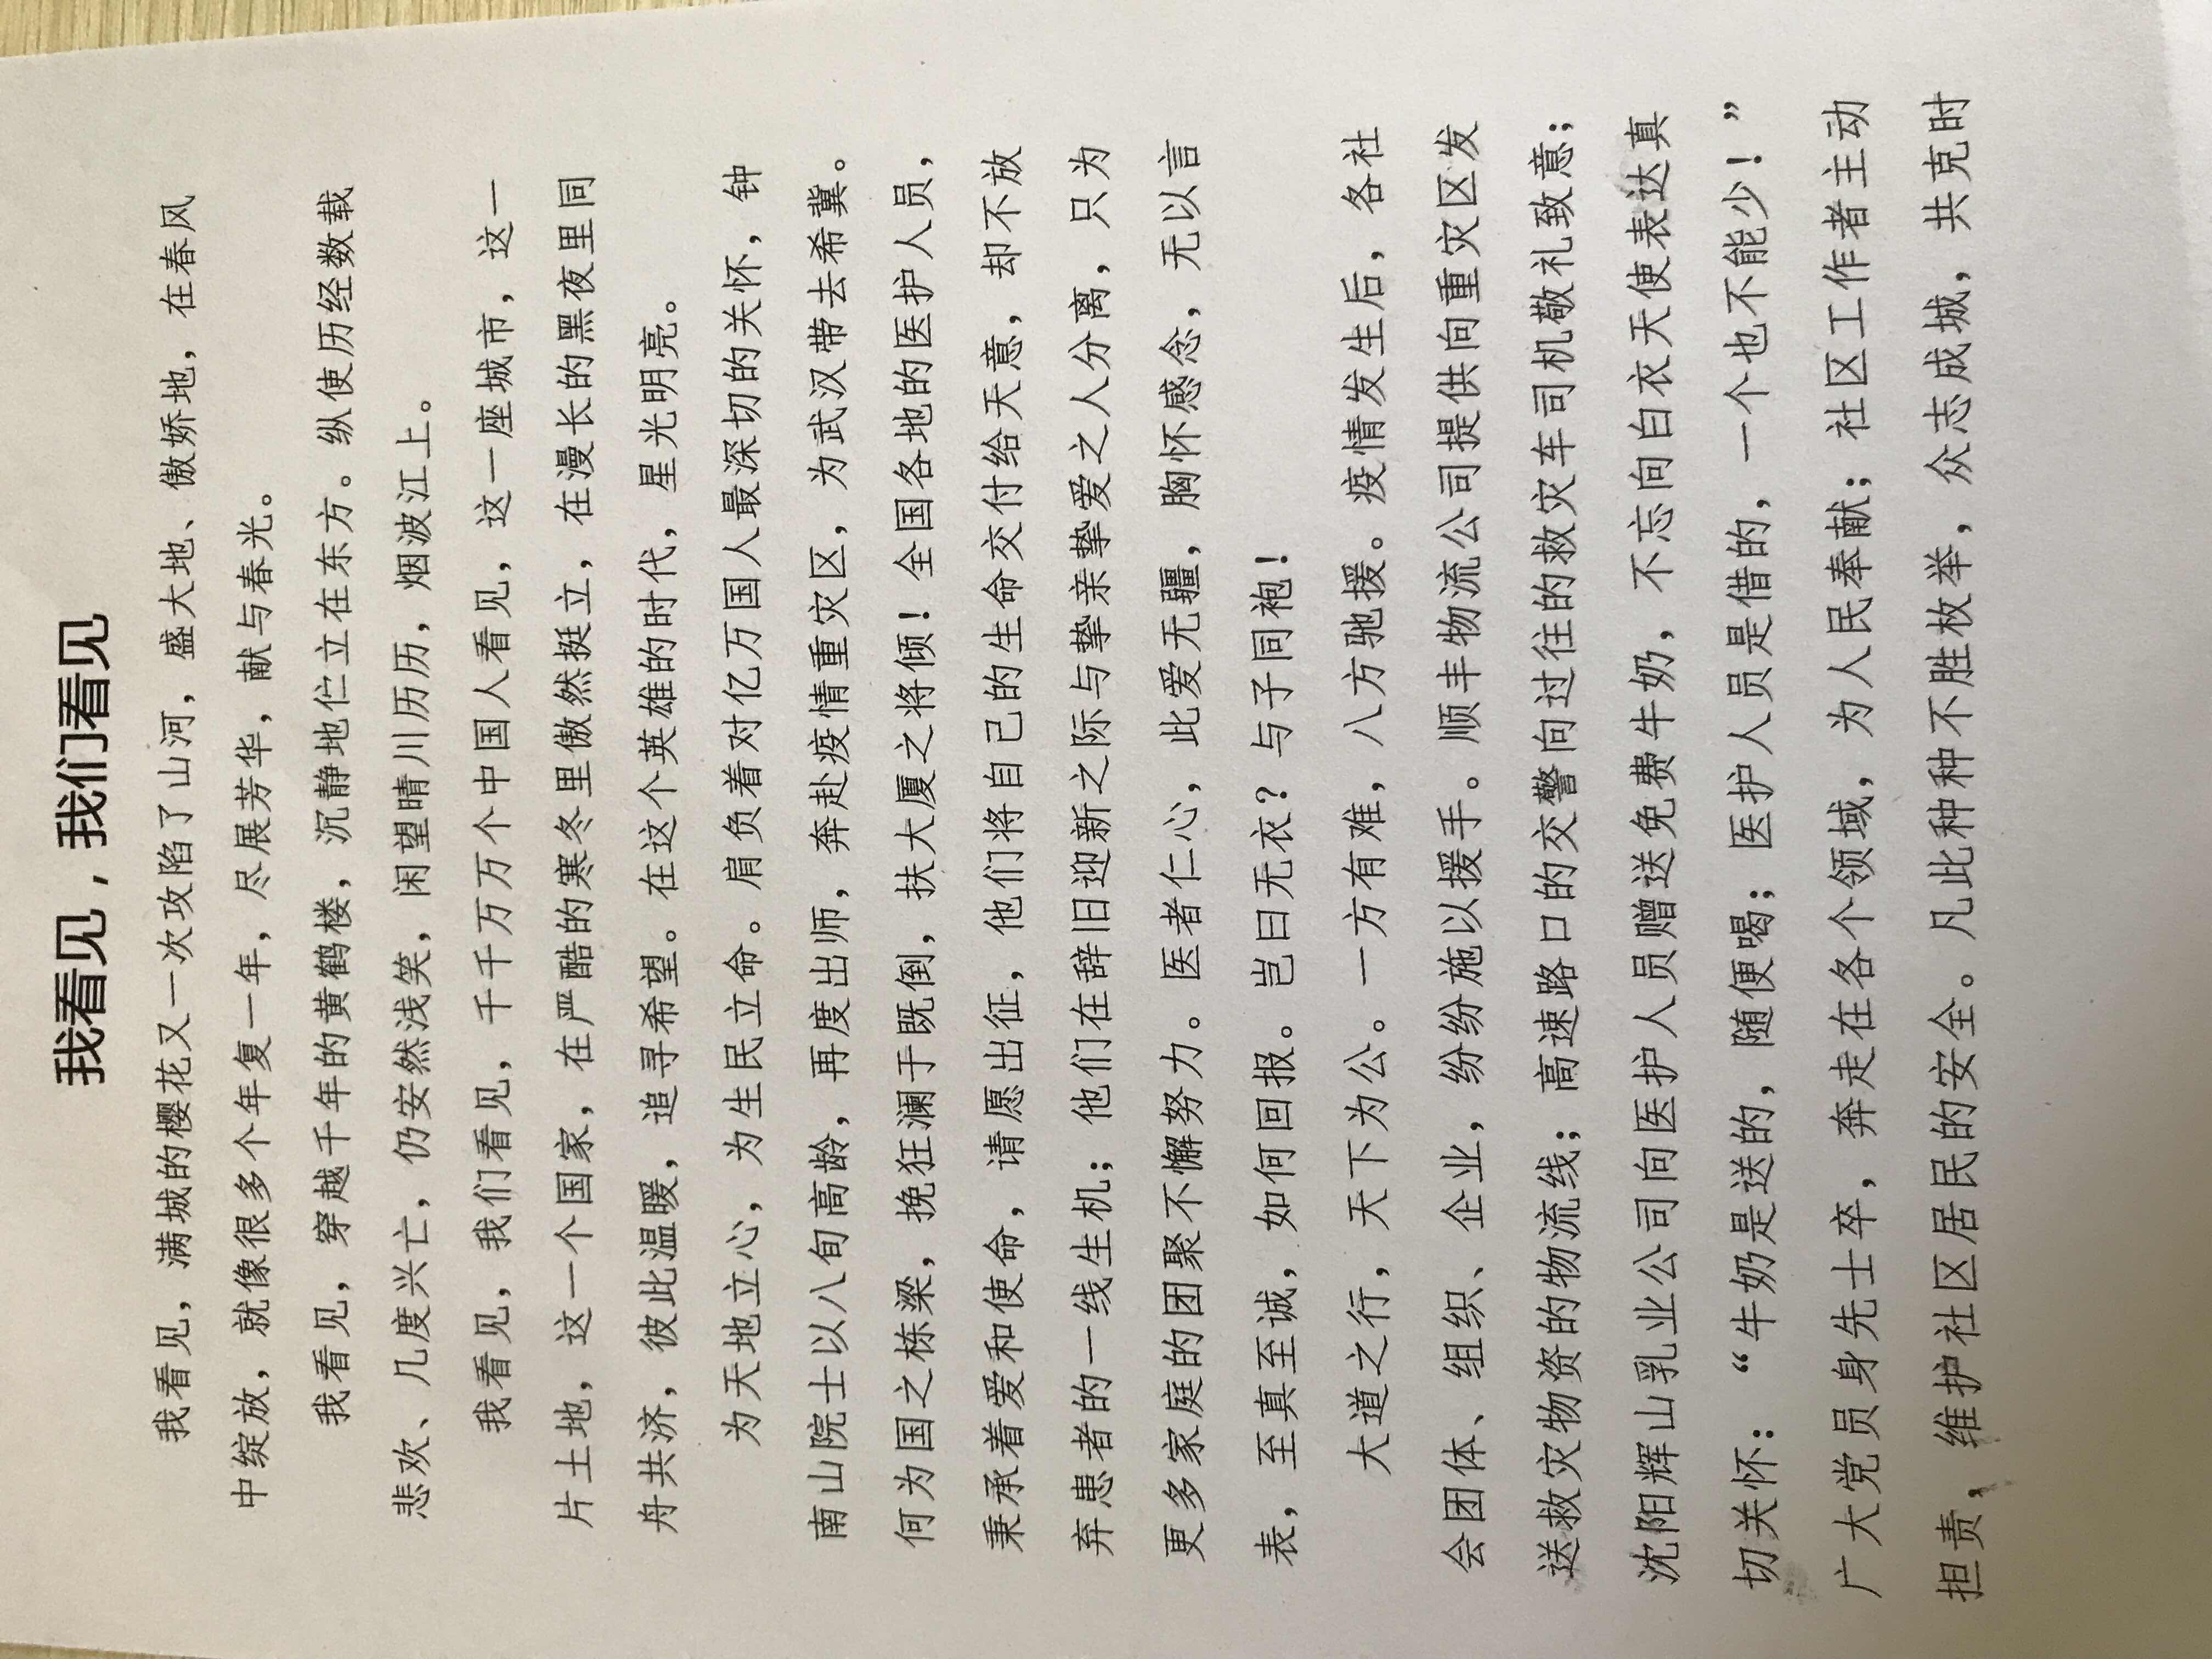 我看见，我们看见
我看见，满城的樱花又一次攻陷了山河，盛大地、傲娇地，在春风
中绽放，就像很多个年复一年，尽展芳华，献与春光。
我看见，穿越千年的黄鹤楼，沉静地伫立在东方。纵使历经数载
悲欢、几度兴亡，仍安然浅笑，闲望晴川历历，烟波江上。
我看见，我们看见，千千万万个中国人看见，这一座城市，这一
片土地，这一个国家，在严酷的寒冬里傲然挺立，在漫长的黑夜里同
舟共济，彼此温暖，追寻希望。在这个英雄的时代，星光明亮。
为天地立心，为生民立命。肩负着对亿万国人最深切的关怀，钟
南山院士以八旬高龄，再度出师，奔赴疫情重灾区，为武汉带去希冀。
何为国之栋梁，挽狂澜于既倒，扶大厦之将倾！全国各地的医护人员，
秉承着爱和使命，请愿出征，他们将自己的生命交付给天意，却不放
弃患者的一线生机；他们在辞旧迎新之际与挚亲挚爱之人分离，只为
更多家庭的团聚不懈努力。医者仁心，此爱无疆，胸怀感念，无以言
表，至真至诚，如何回报。岂曰无衣？与子同袍！
大道之行，天下为公。一方有难，八方驰援。疫情发生后，各社
会团体、组织、企业，纷纷施以援手。顺丰物流公司提供向重灾区发
送救灾物资的物流线；高速路口的交警向过往的救灾车司机敬礼致意；
沈阳辉山乳业公司向医护人员赠送免费牛奶，不忘向白衣天使表达真
切关怀：“牛奶是送的，随便喝；医护人员是借的，一个也不能少！”
广大党员身先士卒，奔走在各个领域，为人民奉献；社区工作者主动
担责，维护社区居民的安全。凡此种种不胜枚举，众志成城，共克时